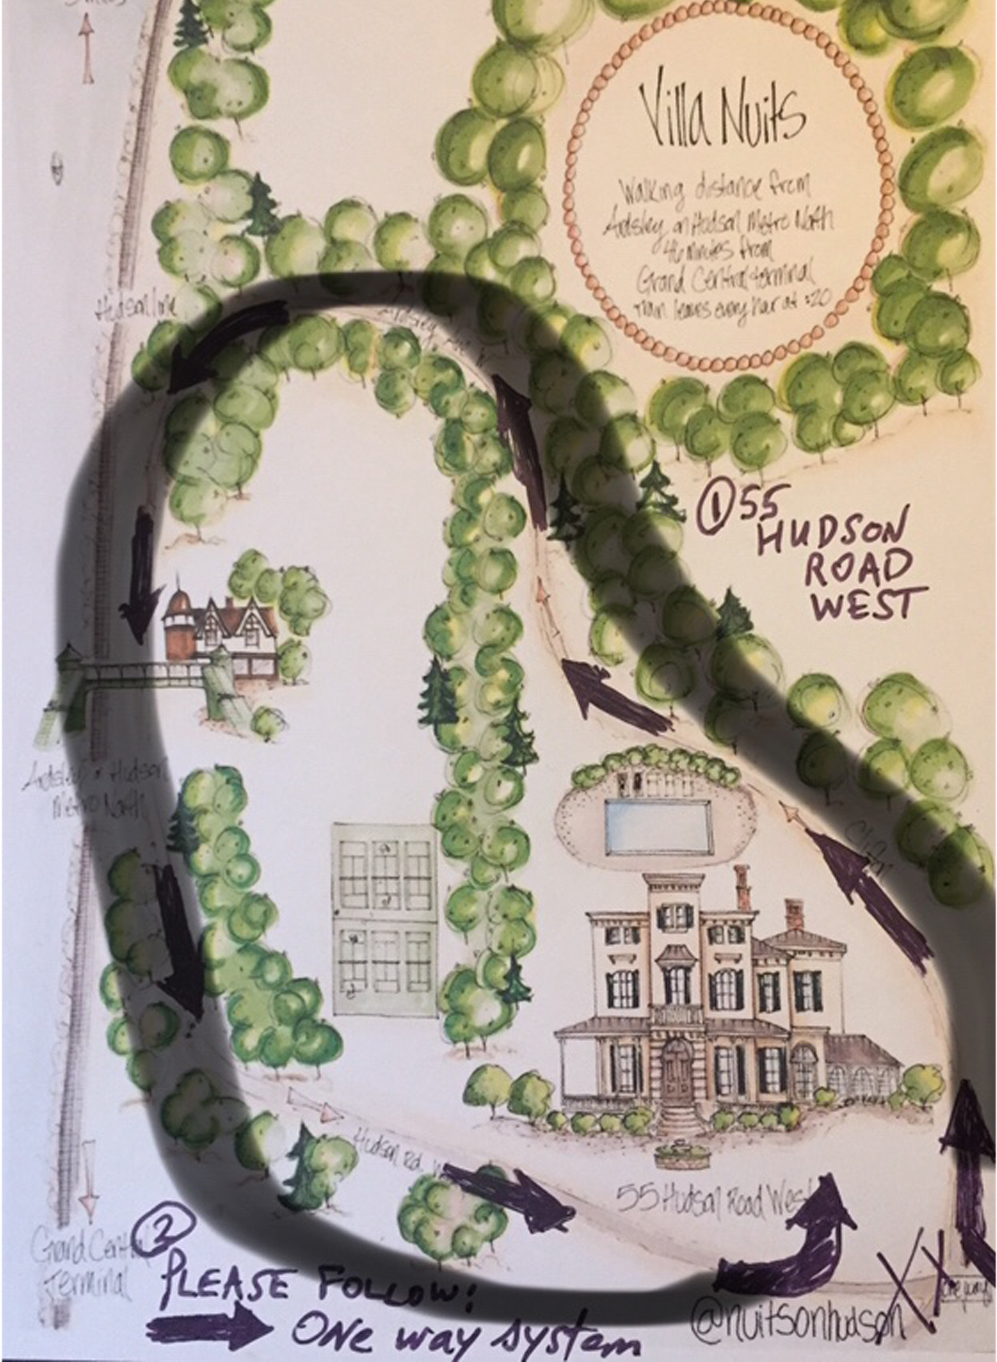 Villa Nuits
Walking distance from
Ardsley on Hudson Metro North
46 minutes from
Grand Central terminal
train leaves every hour at :20
Hudson line
① 55
HUDSON
ROAD
WEST
Ardsley on Hudson
Metro North
Hudson Rd. W
55 Hudson Road West
Grand Central
Terminal
②
PLEASE FOLLOW:
One way system
@nuitsonhudson
XX
one way